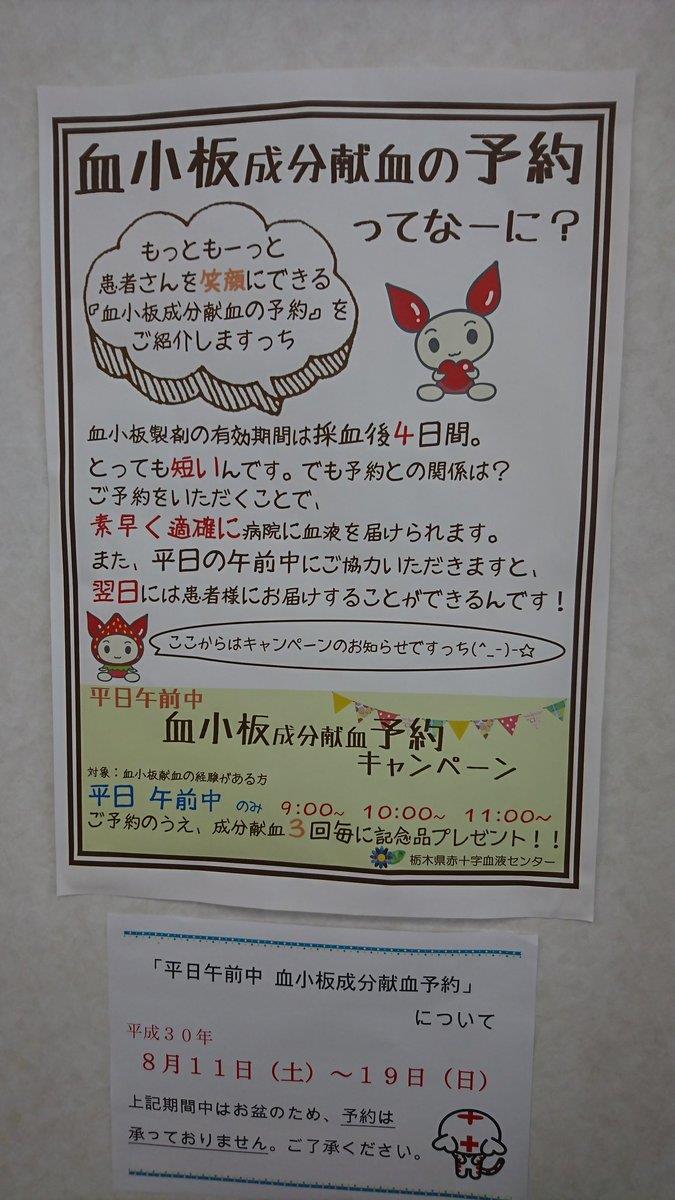 血小板成分献血の予約
ってなーに？
もっともーっと
患者さんを笑顔にできる
『血小板成分献血の予約』を
ご紹介しますっち
血小板製剤の有効期間は採血後4日間。
とっても短いんです。でも予約との関係は？
ご予約をいただくことで、
素早く適確に病院に血液を届けられます。
また、平日の午前中にご協力いただきますと、
翌日には患者様にお届けすることができるんです！
ここからはキャンペーンのお知らせですっち(^_-)-☆
平日午前中
血小板成分献血予約
キャンペーン
対象：血小板献血の経験がある方
平日 午前中 のみ 9:00~ 10:00~ 11:00~
ご予約のうえ、成分献血3回毎に記念品プレゼント！！
栃木県赤十字血液センター
「平日午前中 血小板成分献血予約」
について
平成３０年
８月１１日（土）～１９日（日）
上記期間中はお盆のため、予約は
承っておりません。ご了承ください。